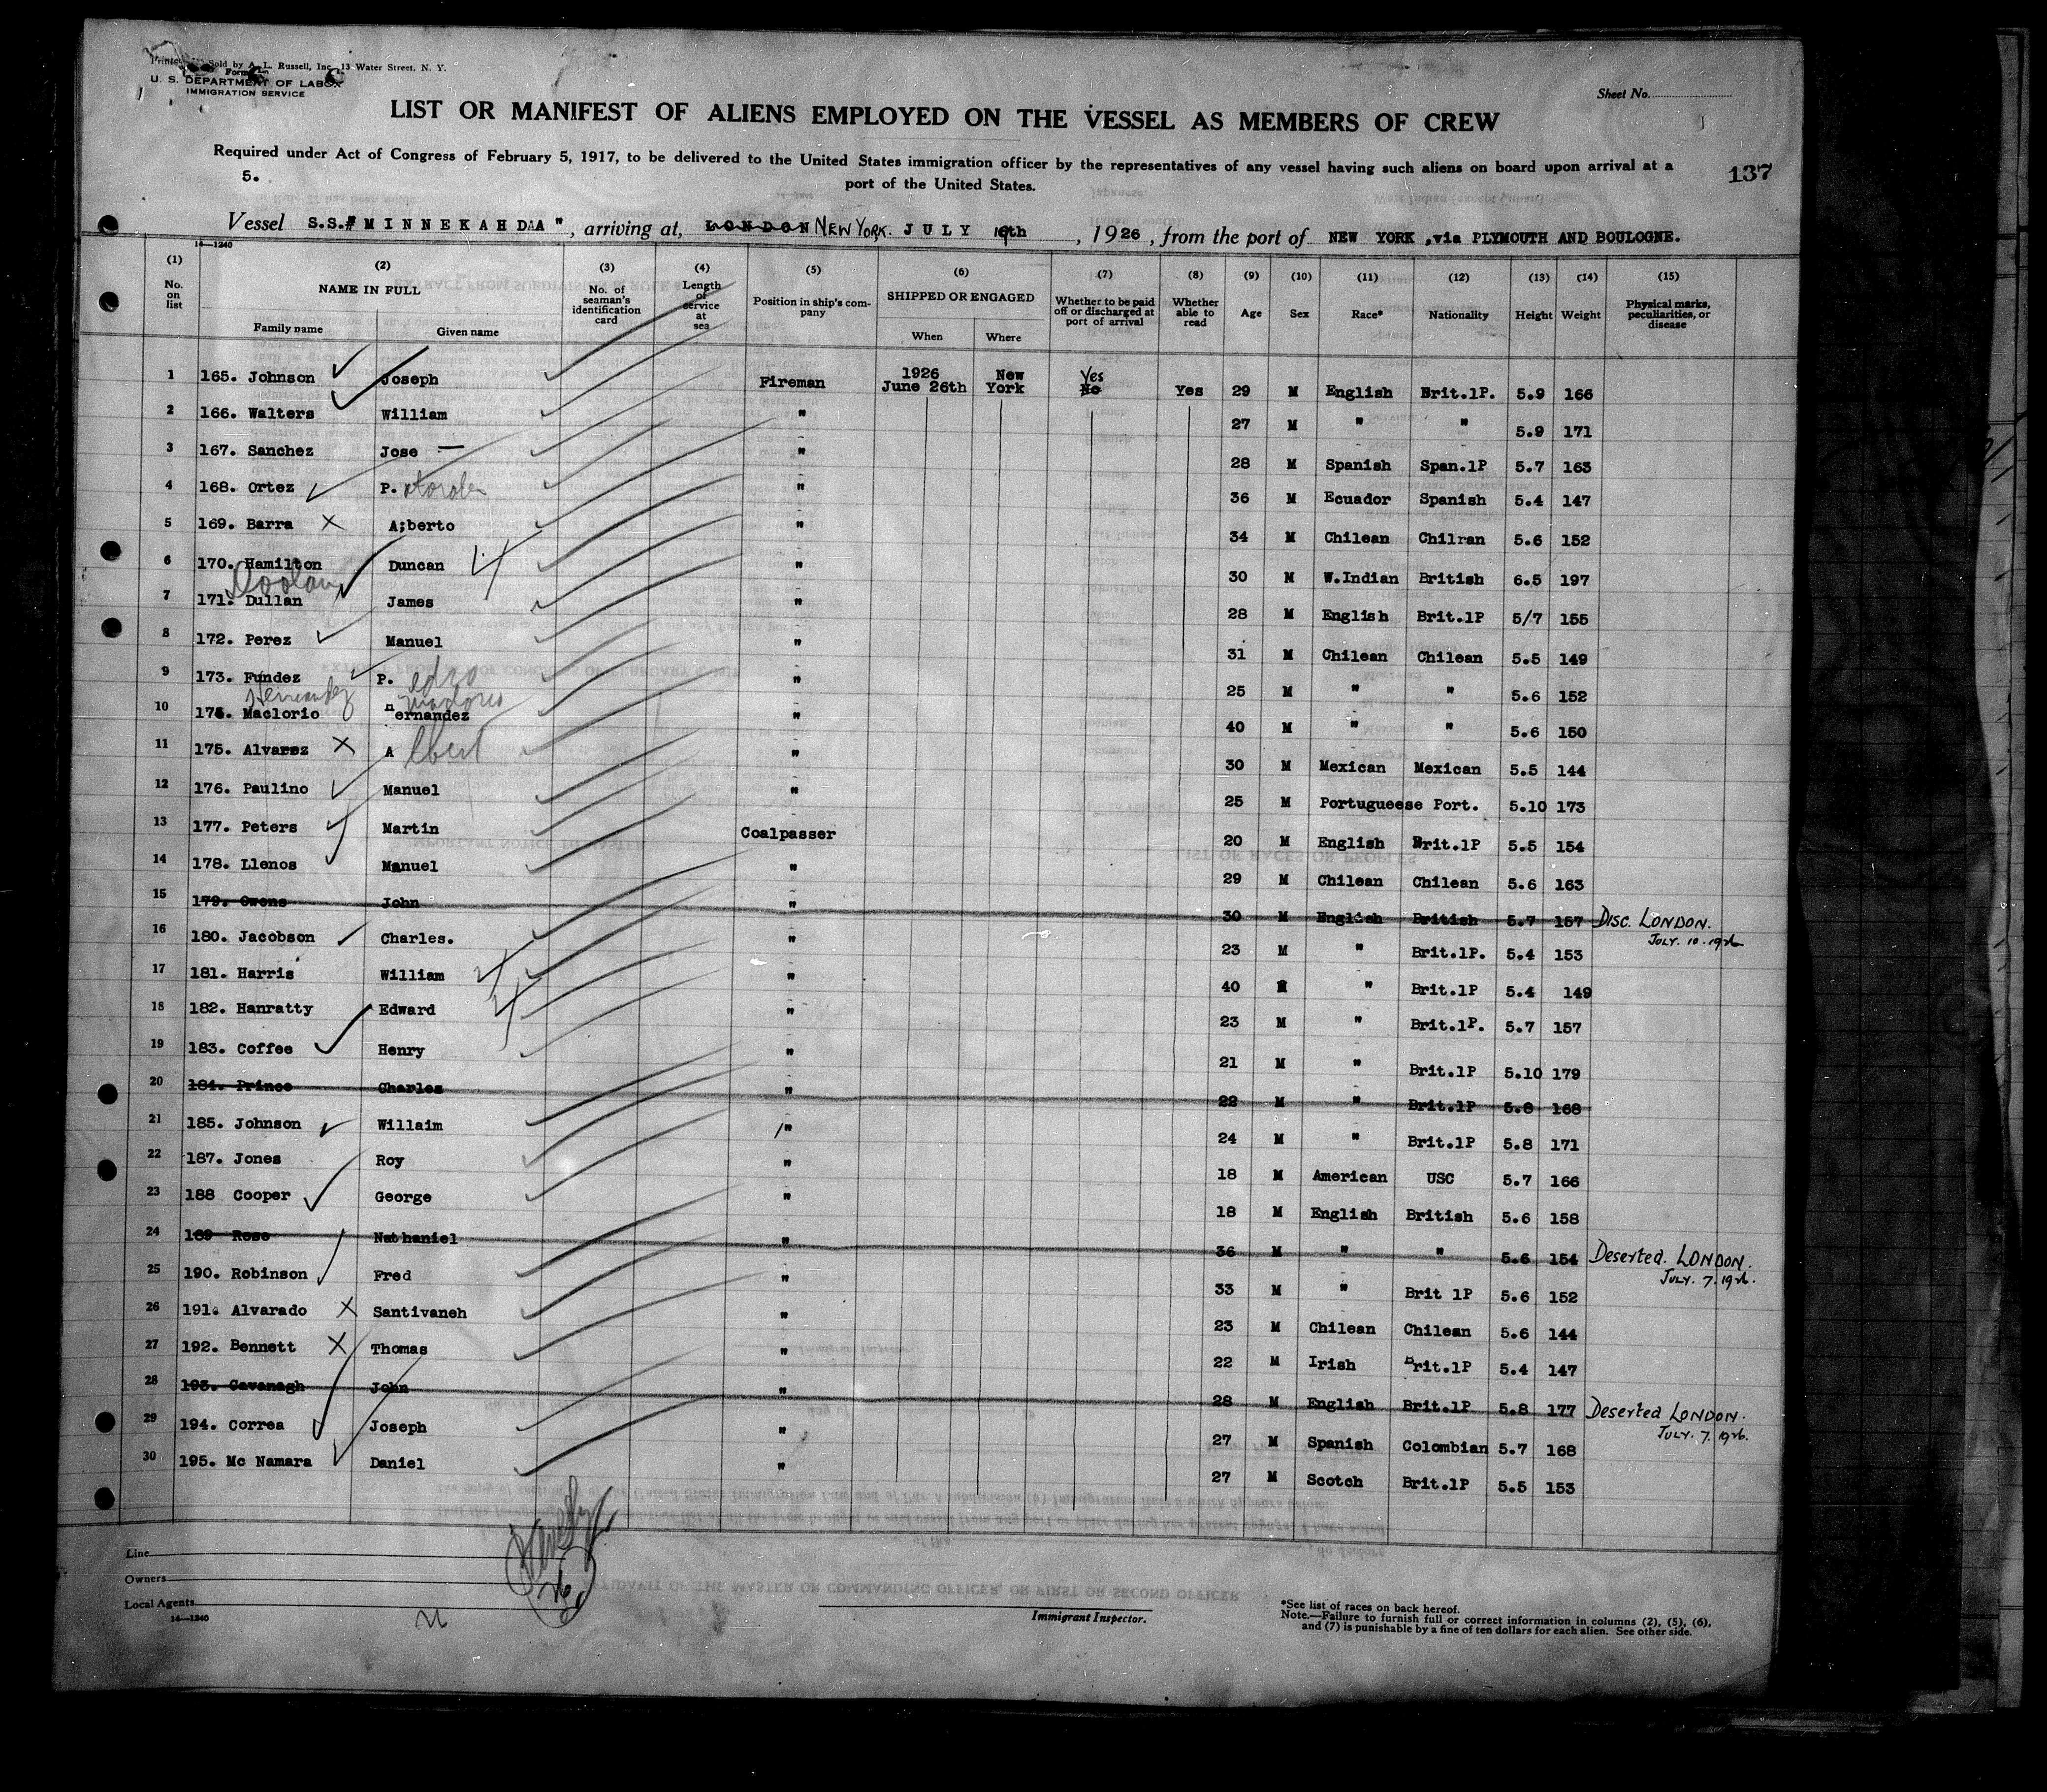 Sold by A. L. Russell, Inc. 13 Water Street, N. Y.
Form
U. S. DEPARTMENT OF LABOR
IMMIGRATION SERVICE
Sheet No.
LIST OR MANIFEST OF ALIENS EMPLOYED ON THE VESSEL AS MEMBERS OF CREW
Required under Act of Congress of February 5, 1917, to be delivered to the United States immigration officer by the representatives of any vessel having such aliens on board upon arrival at a
5. port of the United States.
137
Vessel S.S."MINNEKAHDA", arriving at, LONDON NEW YORK. JULY 19th, 1926, from the port of NEW YORK ,via PLYMOUTH AND BOULOGNE.
14—1240
(1) (2) (3) (4) (5) (6) (7) (8) (9) (10) (11) (12) (13) (14) (15)
No. on list NAME IN FULL Family name Given name No. of seaman's identification card Length of service at sea Position in ship's company SHIPPED OR ENGAGED When Where Whether to be paid off or discharged at port of arrival Whether able to read Age Sex Race* Nationality Height Weight Physical marks, peculiarities, or disease
1 165. Johnson Joseph Fireman 1926 June 26th New York Yes No Yes 29 M English Brit.lP. 5.9 166
2 166. Walters William " 27 M " " 5.9 171
3 167. Sanchez Jose — " 28 M Spanish Span.lP 5.7 163
4 168. Ortez P. " 36 M Ecuador Spanish 5.4 147
5 169. Barra X A;berto " 34 M Chilean Chilran 5.6 152
6 170. Hamilton Duncan " 30 M W.Indian British 6.5 197
Doolan
7 171. Dullan James " 28 M English Brit.lP 5/7 155
8 172. Perez Manuel " 31 M Chilean Chilean 5.5 149
9 173. Fundez P. edro " 25 M " " 5.6 152
Hernandez
10 174. Maclorio Hernandez " 40 M " " 5.6 150
11 175. Alvarez X A lbert " 30 M Mexican Mexican 5.5 144
12 176. Paulino Manuel " 25 M Portugueese Port. 5.10 173
13 177. Peters Martin Coalpasser 20 M English Brit.lP 5.5 154
14 178. Llenos Manuel " 29 M Chilean Chilean 5.6 163
15 179. Owens John " 30 M English British 5.7 157 DISC. LONDON.
JULY. 10. 1926
16 180. Jacobson Charles. " 23 M " Brit.lP. 5.4 153
17 181. Harris William " 40 M " Brit.lP 5.4 149
18 182. Hanratty Edward " 23 M " Brit.lP. 5.7 157
19 183. Coffee Henry " 21 M " Brit.lP 5.10 179
20 184. Prince Charles " 22 M " Brit.lP 5.8 168
21 185. Johnson Willaim " 24 M " Brit.lP 5.8 171
22 187. Jones Roy " 18 M American USC 5.7 166
23 188 Cooper George " 18 M English British 5.6 158
24 189 Rose Nathaniel " 36 M " " 5.6 154 Deserted. LONDON.
JULY. 7. 1926.
25 190. Robinson Fred " 33 M " Brit lP 5.6 152
26 191. Alvarado X Santivaneh " 23 M Chilean Chilean 5.6 144
27 192. Bennett X Thomas " 22 M Irish Brit.lP 5.4 147
28 193. Cavanagh John " 28 M English Brit.lP 5.8 177 Deserted LONDON.
JULY. 7. 1926.
29 194. Correa Joseph " 27 M Spanish Colombian 5.7 168
30 195. Mc Namara Daniel " 27 M Scotch Brit.lP 5.5 153
Line
Owners
Local Agents
14—1240
Immigrant Inspector.
*See list of races on back hereof.
Note.—Failure to furnish full or correct information in columns (2), (5), (6),
and (7) is punishable by a fine of ten dollars for each alien. See other side.